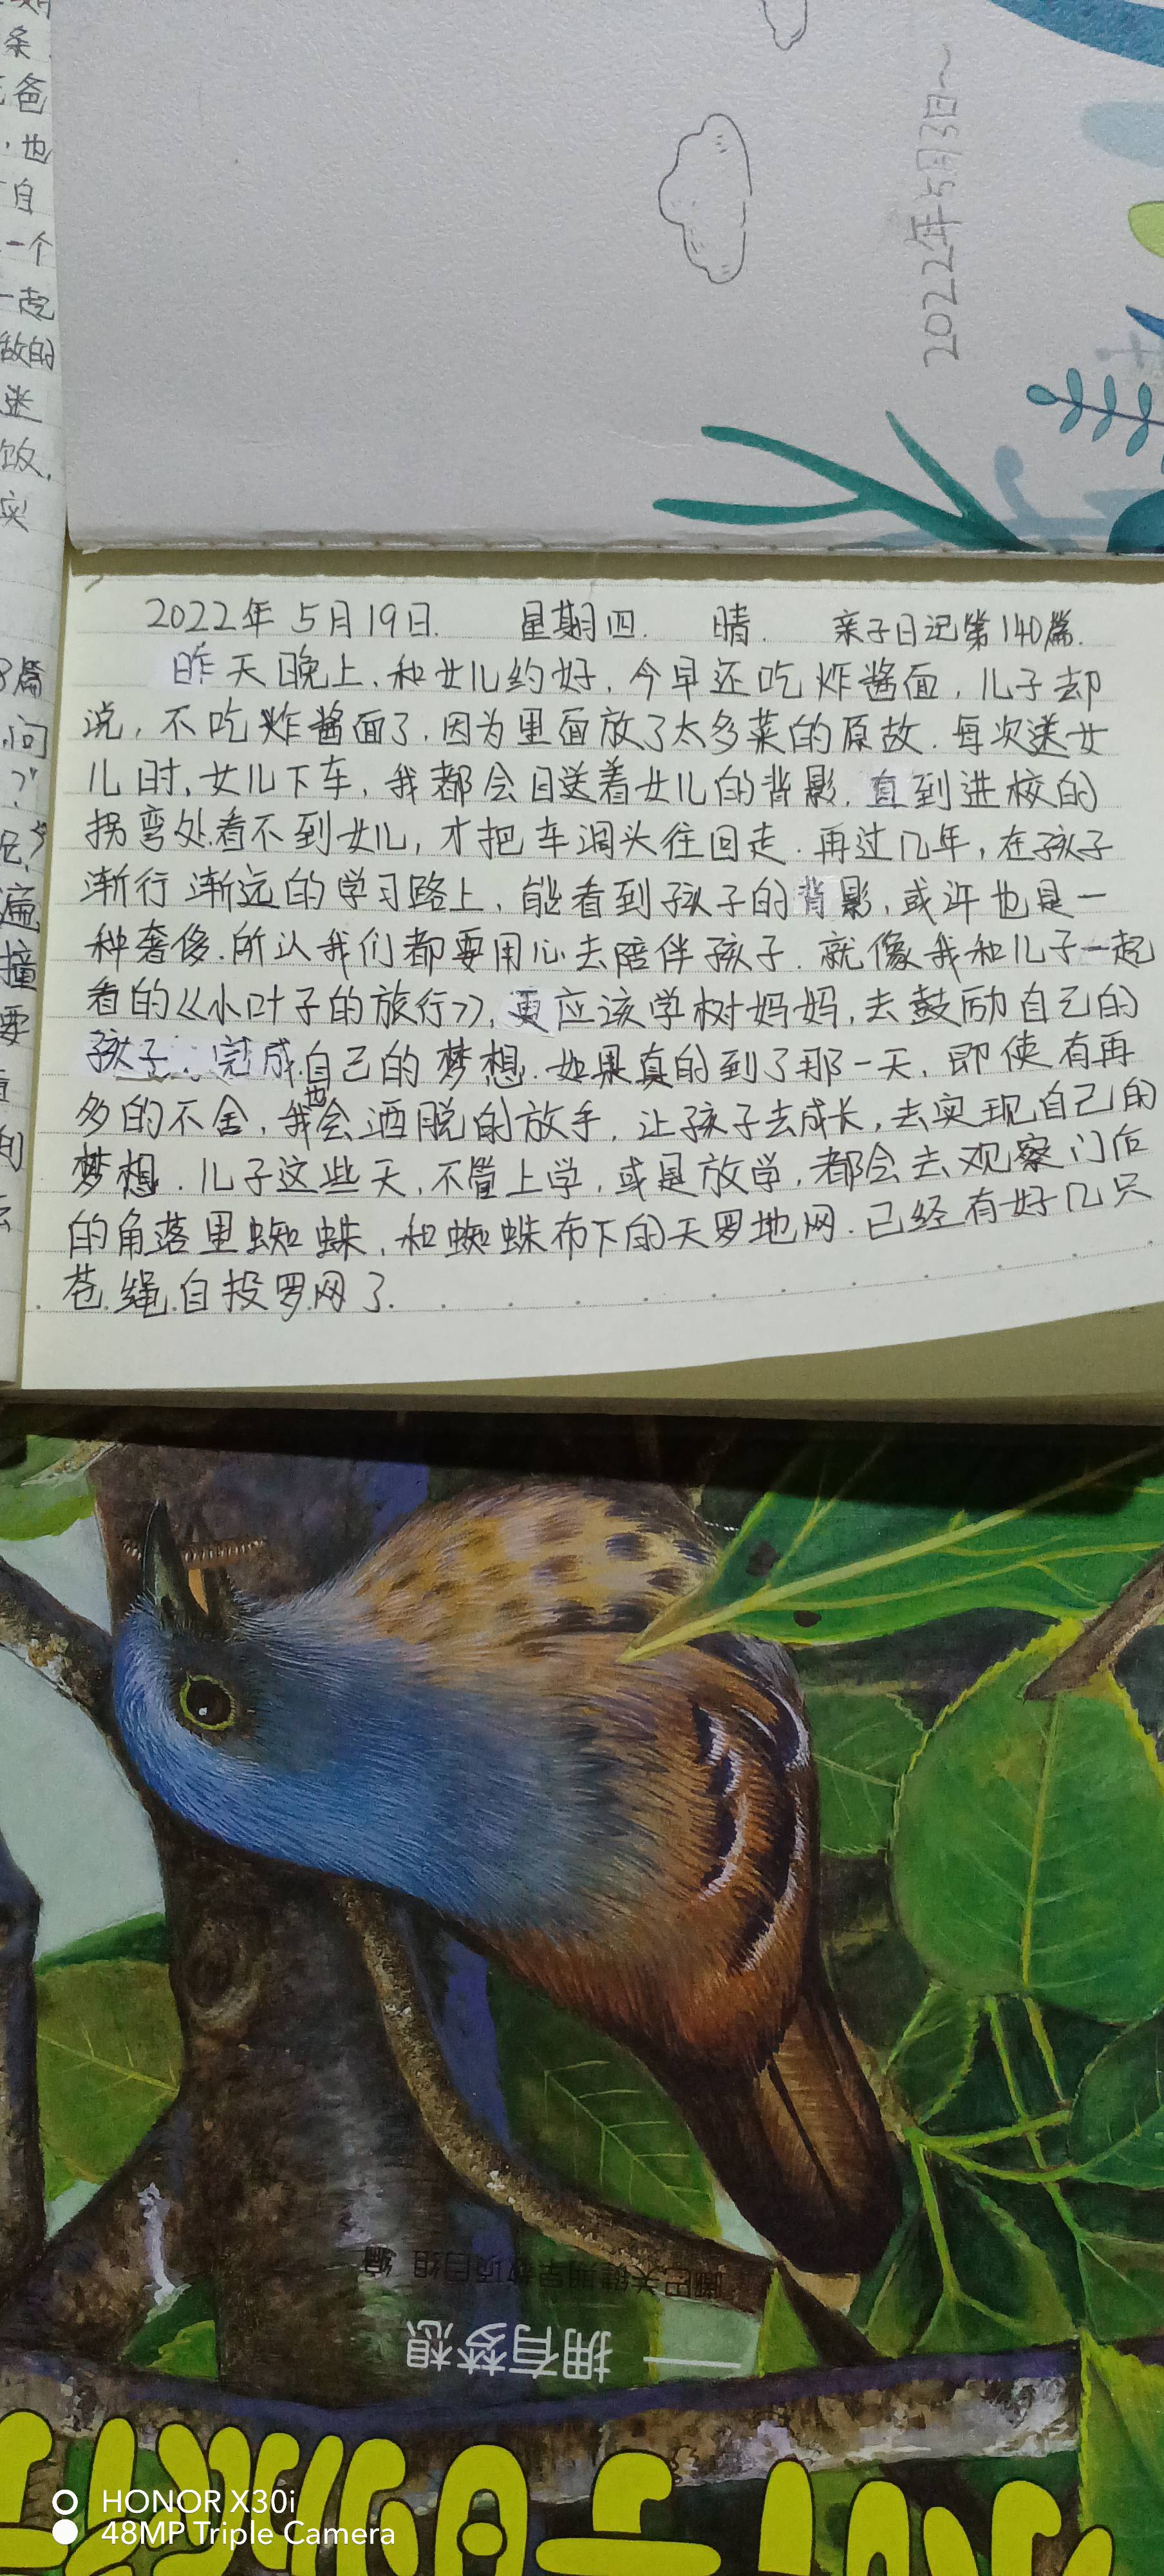 条
爸
，也
自
一个
一起
做的
送
饭，
实
2022年5月3日～
2022年5月19日. 星期四. 晴. 亲子日记第140篇.
昨天晚上，和女儿约好，今早还吃炸酱面，儿子却
说，不吃炸酱面了，因为里面放了太多菜的原故．每次送女
儿时，女儿下车，我都会目送着女儿的背影，直到进校的
拐弯处看不到女儿，才把车调头往回走．再过几年，在孩子
渐行渐远的学习路上，能看到孩子的背影，或许也是一
种奢侈．所认我们都要用心去陪伴孩子．就像我和儿子一起
看的《小叶子的旅行》，更应该学树妈妈，去鼓励自己的
孩子，完成自己的梦想．如果真的到了那一天，即使有再
多的不舍，我也会洒脱的放手，让孩子去成长，去实现自己的
梦想．儿子这些天，不管上学，或是放学，都会去观察门后
的角落里蜘蛛，和蜘蛛布下的天罗地网．已经有好几只
苍绳自投罗网了．
篇
问
？"
遍
撞
要
——拥有梦想
HONOR X30i
48MP Triple Camera